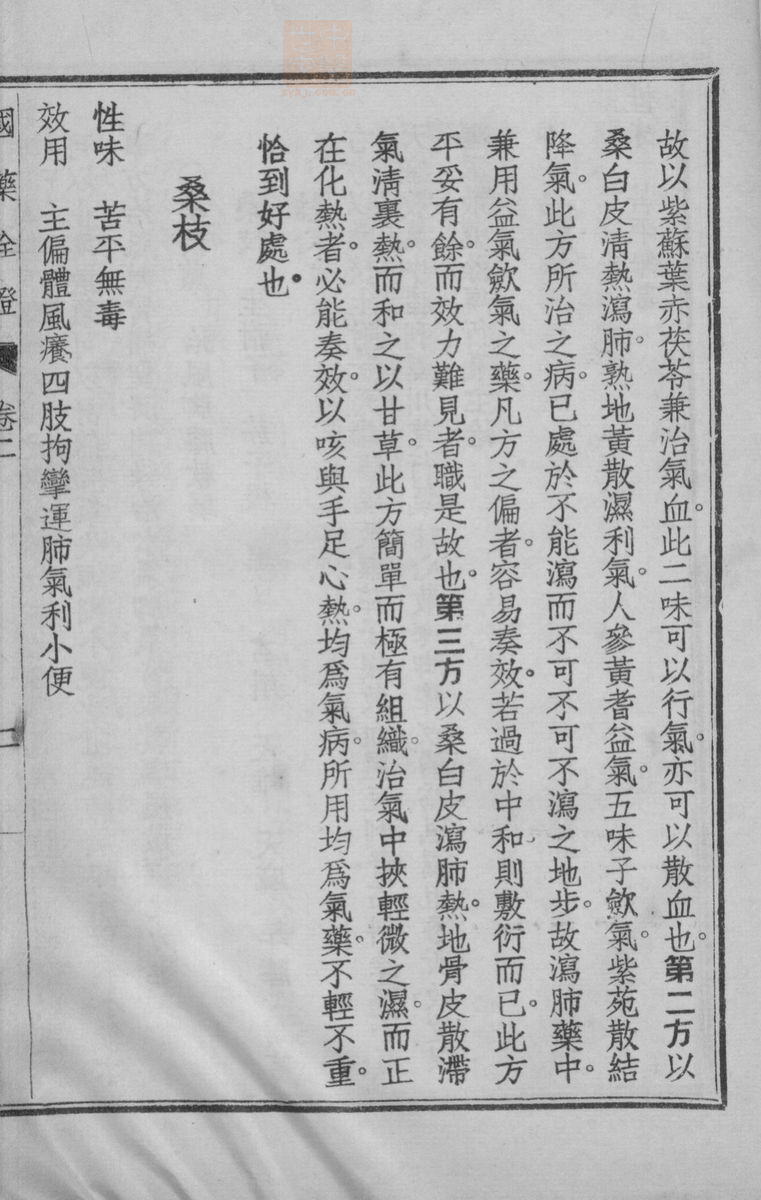 故以紫蘇葉赤茯苓兼治氣血。此二味可以行氣。亦可以散血也。第二方以
桑白皮清熱瀉肺。熟地黃散濕利氣。人參黃耆益氣。五味子歛氣。紫苑散結
降氣。此方所治之病。已處於不能瀉而不可不可不瀉之地步。故瀉肺藥中。
兼用益氣歛氣之藥。凡方之偏者。容易奏效。若過於中和。則敷衍而已。此方
平妥有餘。而效力難見者。職是故也。第三方以桑白皮瀉肺熱。地骨皮散滯
氣清裏熱。而和之以甘草。此方簡單而極有組織。治氣中挾輕微之濕。而正
在化熱者。必能奏效。以咳與手足心熱。均爲氣病。所用均爲氣藥。不輕不重。
恰到好處也。
桑枝
性味 苦平無毒
效用 主偏體風癢四肢拘攣運肺氣利小便
國藥詮證 卷二 二